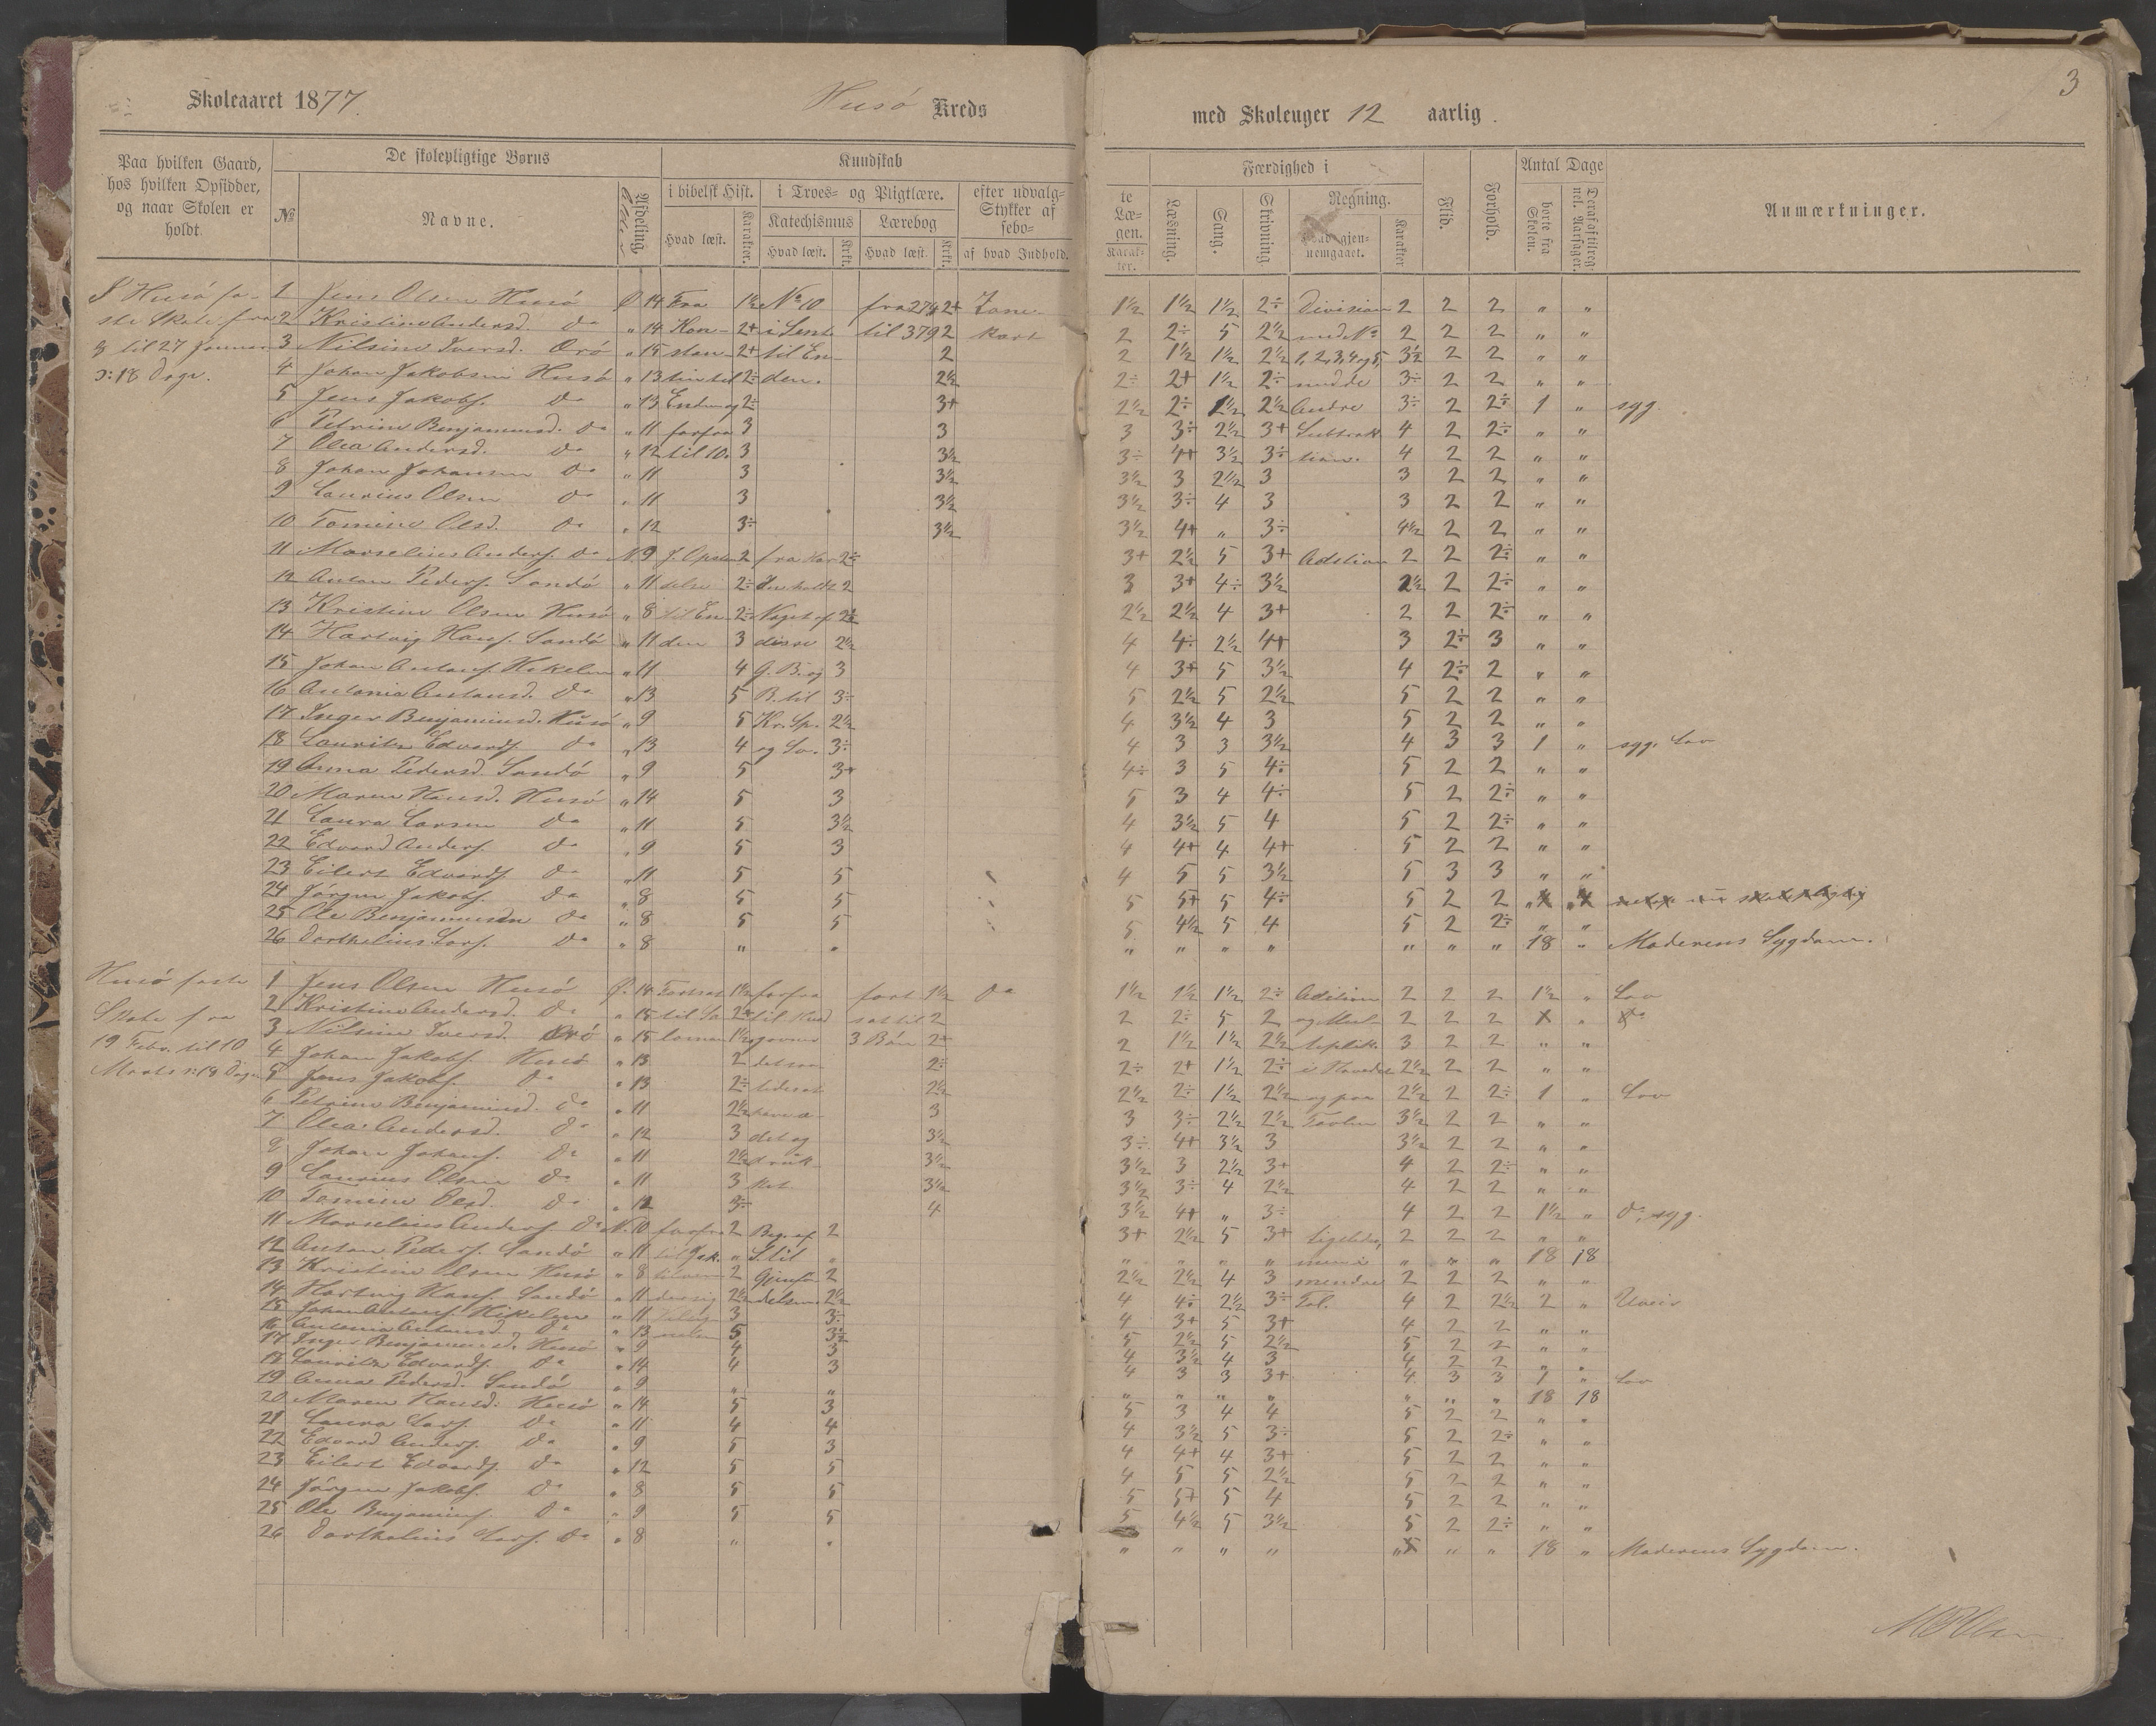 Skoleaaret 1877.
Husö Kreds
med Skoleuger 12 aarlig.
3
Paa hvilken Gaard, hos hvilken Opsidder, og naar Skolen er holdt.
De skolepligtige Børns
№
Navne.
Afdeling.
Kundskab
i bibelsk Hist.
Hvad læst.
Karakter.
i Troes- og Pligtlære.
Katechismus
Hvad læst.
Krkt.
Lærebog
Hvad læst.
Krkt.
efter udvalg-
Stykker af
sebo-
af hvad Indhold.
te
Læ-
gen.
Karak-
ter.
Færdighed i
Læsning.
Sang.
Skrivning.
Regning.
gjen-
nemgaaet.
Karakter
Flid.
Forhold.
Antal Dage
borte fra Skolen.
Deraf af tilreg nel. Aarsager.
Anmærkninger.
I Husö fa-
ste Skole fra
til 27 Januar
ɔ: 18 Dage.
1 Jens Olsen Husö Ø 14 Fra 1½ No 10 fra 274 2+ Zone- 1½ 1½ 1½ 2÷ Division 2 2 2 " "
2 Kristine Andersd. do " 14 Kon- 2+ til 379 2 kart 2 2÷ 5 2½ med No 2 2 2 " "
3 Nilsine Iversd. Orö " 15 stan- 2+ til En- 2 2 1½ 1½ 2½ 1,2,3,4 og 5, 3½ 2 2 " "
4 Johan Jakobsen Husö " 13 tin til 2÷ den. 2½ 2÷ 2+ 1½ 2÷ 3÷ 2 2 " "
5 Jens Jakobs. do " 13 Enden og 2÷ 3+ 2½ 2÷ 1½ 2½ Andre 3÷ 2 2÷ 1 " syg.
6 Petrine Benjaminsd. do " 11 forfra 3 3 3 3÷ 2½ 3+ Subtrak 4 2 2÷ " "
7 Olea Andersd. do " 12 til 10. 3 3½ 3÷ 4+ 3½ 3÷ tion. 4 2 2 " "
8 Johan Johansen do " 11 3 3½ 3½ 3 2½ 3 3 2 2 " "
9 Laurius Olsen do " 11 3 3½ 3½ 3÷ 4 3 3 2 2 " "
10 Tomine Olsd. do " 12 3÷ 3½ 3½ 4+ " 3÷ 4½ 2 2 " "
11 Marselius Anders. do N. 9 2 fra 2÷ 3+ 2½ 5 3+ Adition 2 2 2÷ " "
12 Anton Peders. Sandö " 11 2÷ 2 3 3+ 4÷ 3½ 2½ 2 2÷ " "
13 Kristine Olsen Husö " 8 til En 2÷ Noget af 2÷ 2½ 2½ 4 3+ 2 2 2÷ " "
14 Hartvig Hans. Sandö " 11 den 3 disse 2½ 4 4÷ 2½ 4+ 3 2÷ 3 " "
15 Johan Antons. Hikelen " 11 4 G. B. og 3 4 3+ 5 3½ 4 2÷ 2 " "
16 Antonia Antonsd. do " 13 5 B. til 3÷ 5 2½ 5 2½ 5 2 2 " "
17 Inger Benjaminsd. Husö " 9 5 Kr. Sp. 2½ 4 3½ 4 3 5 2 2 " "
18 Lauritz Edvards. do " 13 4 og Sv. 3÷ 4 3 3 3½ 4 3 3 1 " syg. Lov
19 Anna Pedersd. Sandö " 9 5 3+ 4÷ 3 5 4÷ 5 2 2 " "
20 Maren Hansd. Husö " 14 5 3 5 3 4 4÷ 5 2 2÷ " "
21 Laura Larsen do " 11 5 3½ 4 3½ 5 4 5 2 2÷ " "
22 Edvard Anders. do " 9 5 3 4 4+ 4 4+ 5 2 2 " "
23 Eilert Edvards. do " 11 5 5 4 5 5 3½ 5 3 3 " "
24 Jörgen Jakobs. do " 8 5 5 5 5+ 5 4÷ 5 2 2
25 Ole Benjaminsen do " 8 5 5 5 4½ 5 4 5 2 2÷ " "
26 Dorthelius Lars. do " 8 " " " " " " " " " 18 " Moderens Sygdom.
Husö faste
Skole fra
19 Febr. til 10
Marts ɔ: 18 Dage
1 Jens Olsen Husö Ø. 14 1½ forfra fort 1½ do 1½ 1½ 1½ 2÷ Adition 2 2 2 1½ " Lov
2 Kristine Andersd. do " 15 til Sa 2+ til Hvad sat til 2 2 2÷ 5 2 og Mul- 2 2 2 " do
3 Nilsine Iversd. Orö " 15 lomon 1½ 3 Bön 2÷ 2 1½ 1½ 2½ teplik. 3 2 2 " "
4 Johan Jakobs. Husö " 13 2 det som 2÷ 2÷ 2+ 1½ 2÷ i Hovedet 2½ 2 2 " "
5 Jens Jakobs. do " 13 2÷ 2½ 2½ 2÷ 1½ 2½ og paa 2½ 2 2÷ 1 " Lov
6 Petrine Benjaminsd. do " 11 2½ 3 3 3÷ 2½ 2½ Tavlen 3½ 2 2 " "
7 Olea Andersd. do " 12 3 det og 3½ 3÷ 4+ 3½ 3 3½ 2 2 " "
8 Johan Johans. do " 11 2½ drik- 3½ 3½ 3 2½ 3+ 4 2 2÷ " "
9 Laurius Olsen do " 11 3 ket. 3½ 3½ 3÷ 4 2½ 4 2 2 " "
10 Tomine Olsd. do " 12 3÷ 4 3½ 4+ " 3÷ 4 2 2 1½ " do, syg.
11 Marselius Anders. do N. 10 forfra 2 Beg. af 2 3+ 2½ 5 3+ ligeledes, 2 2 2 " "
12 Anton Peders. Sandö " 11 til Jak. " S til " " " " " " " " 18 18
13 Kristine Olsen Husö " 8 2 Gjenfö- 2 2½ 2½ 4 3 2 2 2 " "
14 Hartvig Hans. Sandö " 11 2½ delsen 2½ 4 4÷ 2½ 3÷ Tal. 4 2 2½ 2 " Uveir
15 Johan Antons. Hikelen " 11 3 3÷ 4 3+ 5 3+ 4 2 2 " "
16 Antonia Antonsd. do " 13 5 3½ 5 2½ 5 2½ 5 2 2 " "
17 Inger Benjaminsd. Husö " 9 4 3 4 3½ 4 3 4 2 2 " "
18 Lauritz Edvards. do " 14 4 3 4 3 3 3+ 4 3 3 1 " Lov
19 Anna Pedersd. Sandö " 9 " " " " " " " " " 18 18
20 Maren Hansd. Husö " 14 5 3 5 3 4 4 5 2 2 " "
21 Laura Lars. do " 11 4 4 4 3½ 5 3÷ 5 2 2÷ " "
22 Edvard Anders. do " 9 5 3 4 4+ 4 3+ 5 2 2 " "
23 Eilert Edvards. do " 12 5 5 4 5 5 2½ 5 2 2 " "
24 Jörgen Jakobs. do " 8 5 5 5 5+ 5 4 5 2 2 " "
25 Ole Benjamins. do " 9 5 5 5 4½ 5 3½ 5 2 2÷ " "
26 Dorthelius Lars. do " 8 " " " " " " " " 18 " Moderens Sygdom.